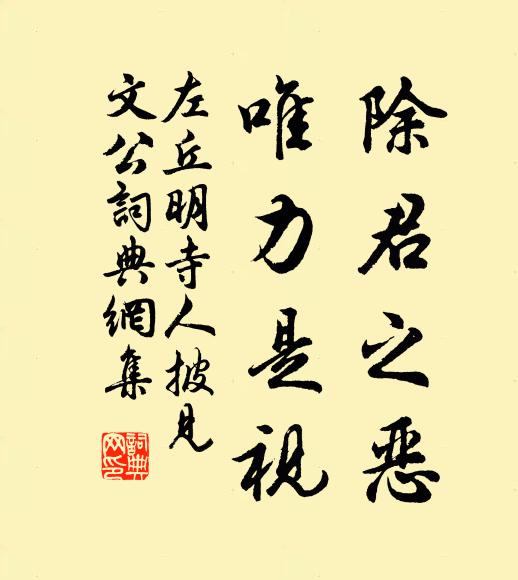 除君之惡
唯力是視
左丘明寺人披見
文公詞典網集
詞典
网印